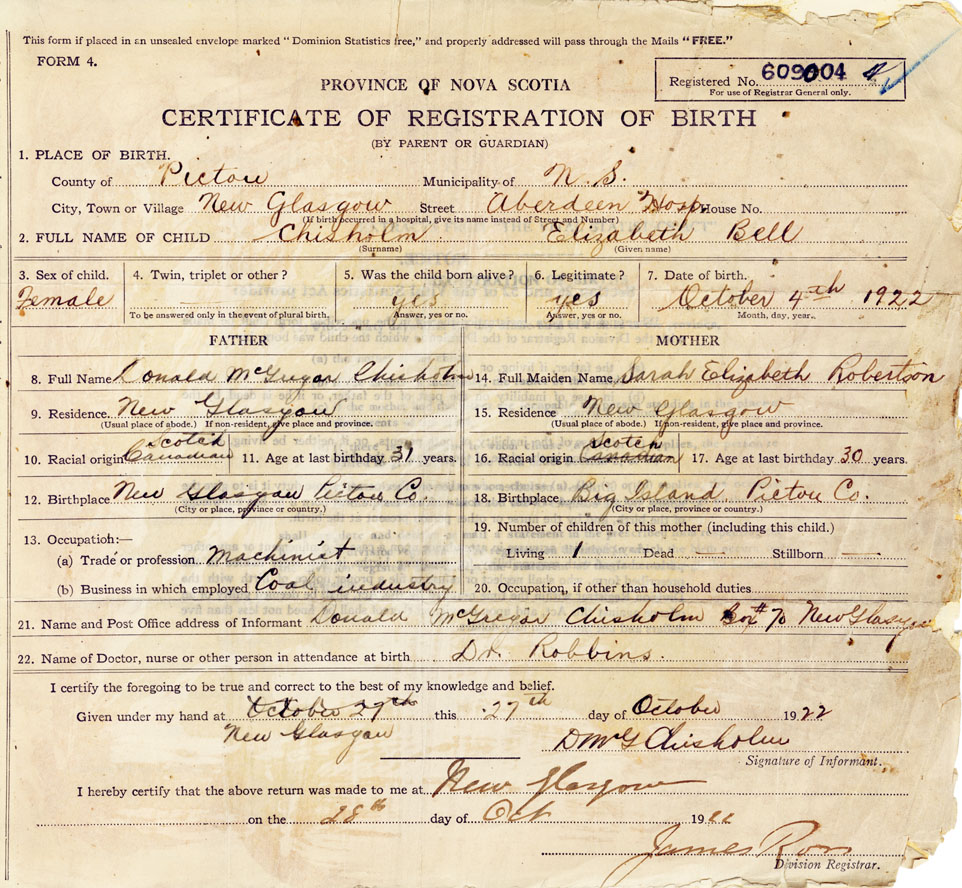 This form if placed in an unsealed envelope marked “Dominion Statistics free,” and properly addressed will pass through the Mails “FREE.”
FORM 4.
Registered No. 609004
For use of Registrar General only.
PROVINCE OF NOVA SCOTIA
CERTIFICATE OF REGISTRATION OF BIRTH
(BY PARENT OR GUARDIAN)
1. PLACE OF BIRTH.
County of Pictou Municipality of N. S.
City, Town or Village New Glasgow Street Aberdeen Hosp. House No.
(If birth occurred in a hospital, give its name instead of Street and Number)
2. FULL NAME OF CHILD Chisholm. Elizabeth Bell
(Surname) (Given name)
3. Sex of child. 4. Twin, triplet or other? 5. Was the child born alive? 6. Legitimate? 7. Date of birth.
Female — yes yes October 4th 1922
To be answered only in the event of plural birth. Answer, yes or no. Answer, yes or no. Month, day, year.
FATHER MOTHER
8. Full Name Donald McGregor Chisholm 14. Full Maiden Name Sarah Elizabeth Robertson
9. Residence New Glasgow 15. Residence New Glasgow
(Usual place of abode.) If non-resident, give place and province. (Usual place of abode.) If non-resident, give place and province.
Scotch Scotch
10. Racial origin Canadian 11. Age at last birthday 31 years. 16. Racial origin Canadian 17. Age at last birthday 30 years.
12. Birthplace New Glasgow Pictou Co. 18. Birthplace Big Island Pictou Co.
(City or place, province or country.) (City or place, province or country.)
13. Occupation:— 19. Number of children of this mother (including this child.)
(a) Trade or profession Machinist Living 1 Dead — Stillborn —
(b) Business in which employed Coal industry 20. Occupation, if other than household duties
21. Name and Post Office address of Informant Donald McGregor Chisholm Box # 70 New Glasgow
22. Name of Doctor, nurse or other person in attendance at birth Dr. Robbins.
I certify the foregoing to be true and correct to the best of my knowledge and belief.
Given under my hand at October 27th this 27th day of October 1922
New Glasgow DMcG Chisholm
Signature of Informant.
I hereby certify that the above return was made to me at New Glasgow
on the 28th day of Oct 1922
James Ross
Division Registrar.